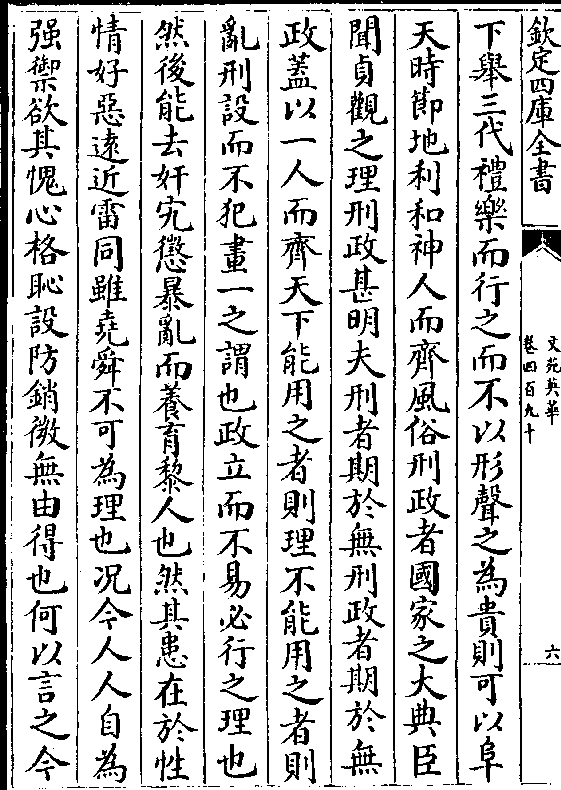 欽定四庫全書
文苑英華
卷四百九十
六
下舉三代禮樂而行之而不以形聲之為貴則可以阜
天時節地利和神人而齊風俗刑政者國家之大典臣
聞貞觀之理刑政甚明夫刑者期於無刑政者期於無
政蓋以一人而齊天下能用之者則理不能用之者則
亂刑設而不犯畫一之謂也政立而不易必行之理也
然後能去奸宄懲暴亂而養育黎人也然其患在於性
情好惡遠近雷同雖堯舜不可為理也况今人人自為
强禦欲其愧心格恥設防銷微無由得也何以言之今